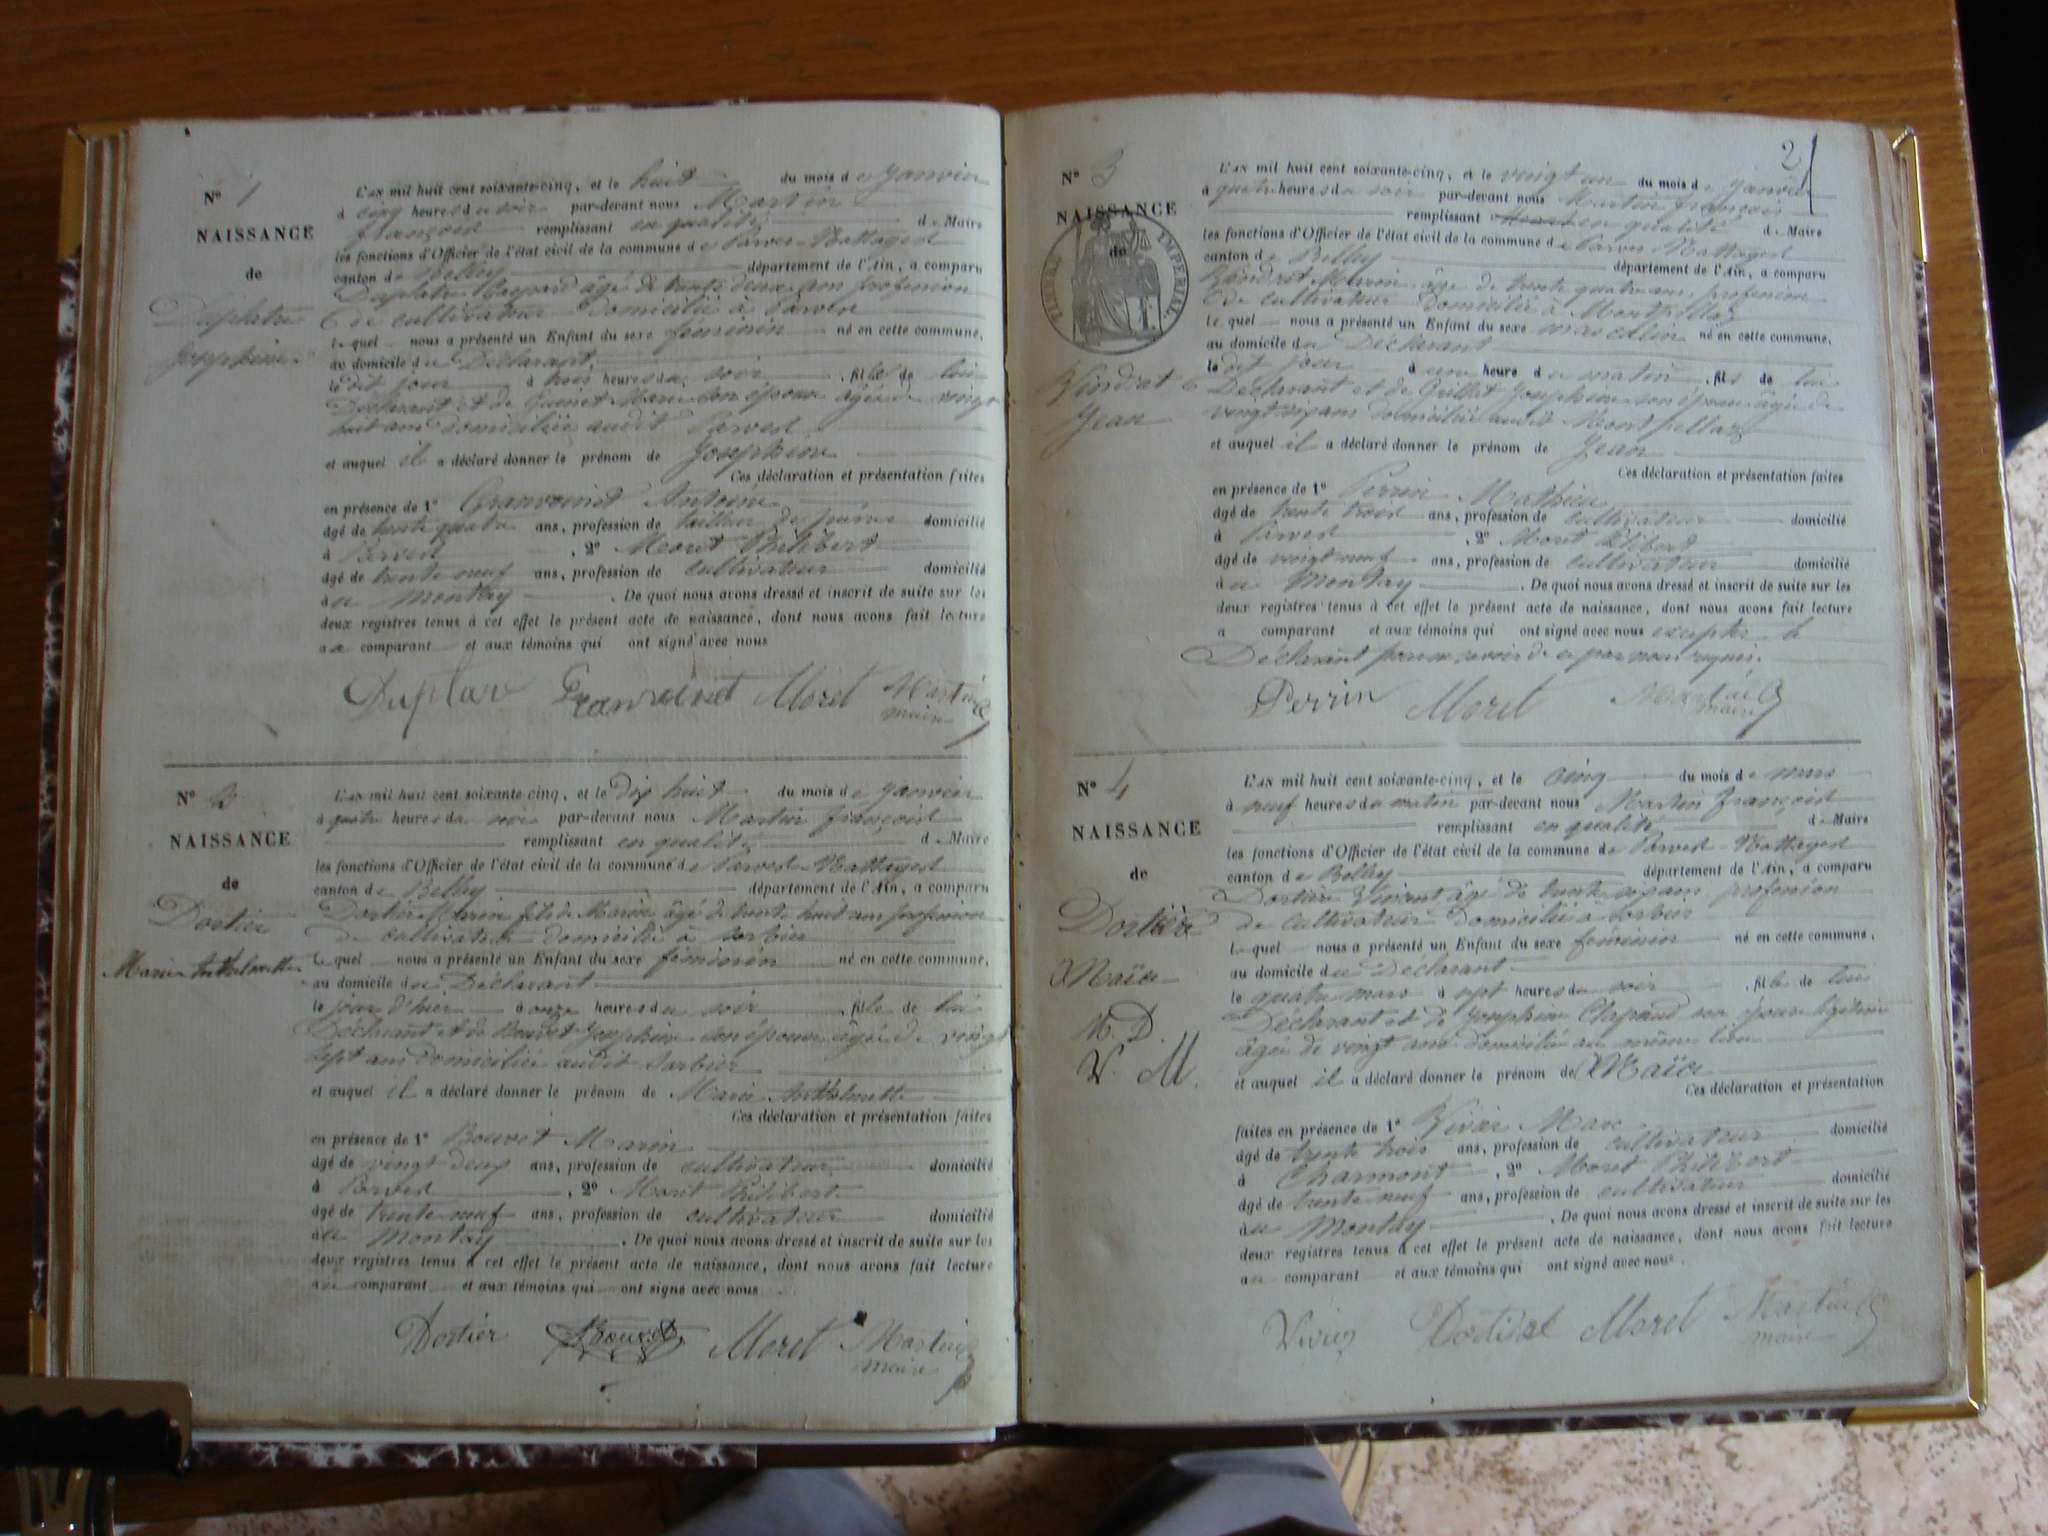 N° 1
NAISSANCE
de
Duplatre
Josephine
L'an mil huit cent soixante-cinq, et le huit du mois de Janvier
à cinq heures du soir par-devant nous Martin
françois remplissant en qualité de Maire
les fonctions d'Officier de l'état civil de la commune de Parves Nattages
canton de Belley département de l'Ain, a comparu
âgé de trente deux ans profession
de cultivateur domicilié à Parves
lequel nous a présenté un Enfant du sexe féminin né en cette commune,
au domicile du Déclarant
le dit jour à trois heures du soir, fille de lui
Déclarant et de Marie son épouse âgée de vingt
huit ans domiciliée audit Parves
et auquel il a déclaré donner le prénom de Josephine
Ces déclaration et présentation faites
en présence de 1° Granvoinet Antoine
âgé de trente quatre ans, profession de tailleur de pierre domicilié
à Parves, 2° Moret Philibert
âgé de trente neuf ans, profession de cultivateur domicilié
à au Montay. De quoi nous avons dressé et inscrit de suite sur les
deux registres tenus à cet effet le présent acte de naissance, dont nous avons fait lecture
au comparant et aux témoins qui ont signé avec nous
Duplatre Granvoinet Moret Martin
maire
N° 2
NAISSANCE
de
Dortier
Marie Anthelmette
L'an mil huit cent soixante-cinq, et le Dix huit du mois de Janvier
à quatre heures du soir par-devant nous Martin françois
remplissant en qualité de Maire
les fonctions d'Officier de l'état civil de la commune de Parves Nattages
canton de Belley département de l'Ain, a comparu
Dortier Marin fils de Marin âgé de trente huit ans profession
de cultivateur domicilié à Sorbier
lequel nous a présenté un Enfant du sexe féminin né en cette commune,
au domicile du Déclarant
le jour d'hier à onze heures du soir, fille de lui
Déclarant et de Bouvet Josephine son épouse âgée de vingt
sept ans domiciliée audit Sorbier
et auquel il a déclaré donner le prénom de Marie Anthelmette
Ces déclaration et présentation faites
en présence de 1° Bouvet Marin
âgé de vingt deux ans, profession de cultivateur domicilié
à Parves, 2° Moret Philibert
âgé de trente neuf ans, profession de cultivateur domicilié
à au Montay. De quoi nous avons dressé et inscrit de suite sur les
deux registres tenus à cet effet le présent acte de naissance, dont nous avons fait lecture
au comparant et aux témoins qui ont signé avec nous
Dortier Bouvet Moret Martin
maire
2
N° 3
NAISSANCE
de
TIMBRE IMPERIAL
Vindret
Jean
L'an mil huit cent soixante-cinq, et le vingt un du mois de Janvier
à quatre heures du soir par-devant nous Martin françois
remplissant en qualité de Maire
les fonctions d'Officier de l'état civil de la commune de Parves Nattages
canton de Belley département de l'Ain, a comparu
Vindret Marin âgé de trente quatre ans, profession
de cultivateur Domicilié à Montpellaz
lequel nous a présenté un Enfant du sexe masculin né en cette commune,
au domicile du Déclarant
le dit jour à une heure du matin, fils de lui
Déclarant et de Guillet Josephine son épouse âgée de
vingt six ans domiciliée audit Montpellaz
et auquel il a déclaré donner le prénom de Jean
Ces déclaration et présentation faites
en présence de 1° Perrin Mathieu
âgé de trente trois ans, profession de cultivateur domicilié
à Parves, 2° Moret
âgé de vingt neuf ans, profession de cultivateur domicilié
à au Montay. De quoi nous avons dressé et inscrit de suite sur les
deux registres tenus à cet effet le présent acte de naissance, dont nous avons fait lecture
a comparant et aux témoins qui ont signé avec nous excepté le
Déclarant pour ne savoir de ce par nous requis.
Perrin Moret Martin
maire
N° 4
NAISSANCE
de
Dortier
Maïa
M. D.
V. M.
L'an mil huit cent soixante-cinq, et le cinq du mois de mars
à neuf heures du matin par-devant nous Martin françois
remplissant en qualité de Maire
les fonctions d'Officier de l'état civil de la commune de Parves Nattages
canton de Belley département de l'Ain, a comparu
Dortier Vincent âgé de trente six ans, profession
de cultivateur domicilié à Sorbier
lequel nous a présenté un Enfant du sexe féminin né en cette commune,
au domicile du Déclarant
le quatre mars à sept heures du soir, fille de lui
Déclarant et de Josephine Chapaud son épouse légitime
âgée de vingt ans domiciliée au même lieu
et auquel il a déclaré donner le prénom de Maïa
Ces déclaration et présentation
faites en présence de 1° Vivier Max
âgé de trente trois ans, profession de cultivateur domicilié
à Charmont, 2° Moret Philibert
âgé de trente neuf ans, profession de cultivateur domicilié
à au Montay. De quoi nous avons dressé et inscrit de suite sur les
deux registres tenus à cet effet le présent acte de naissance, dont nous avons fait lecture
au comparant et aux témoins qui ont signé avec nous.
Vivier Moret Martin
maire